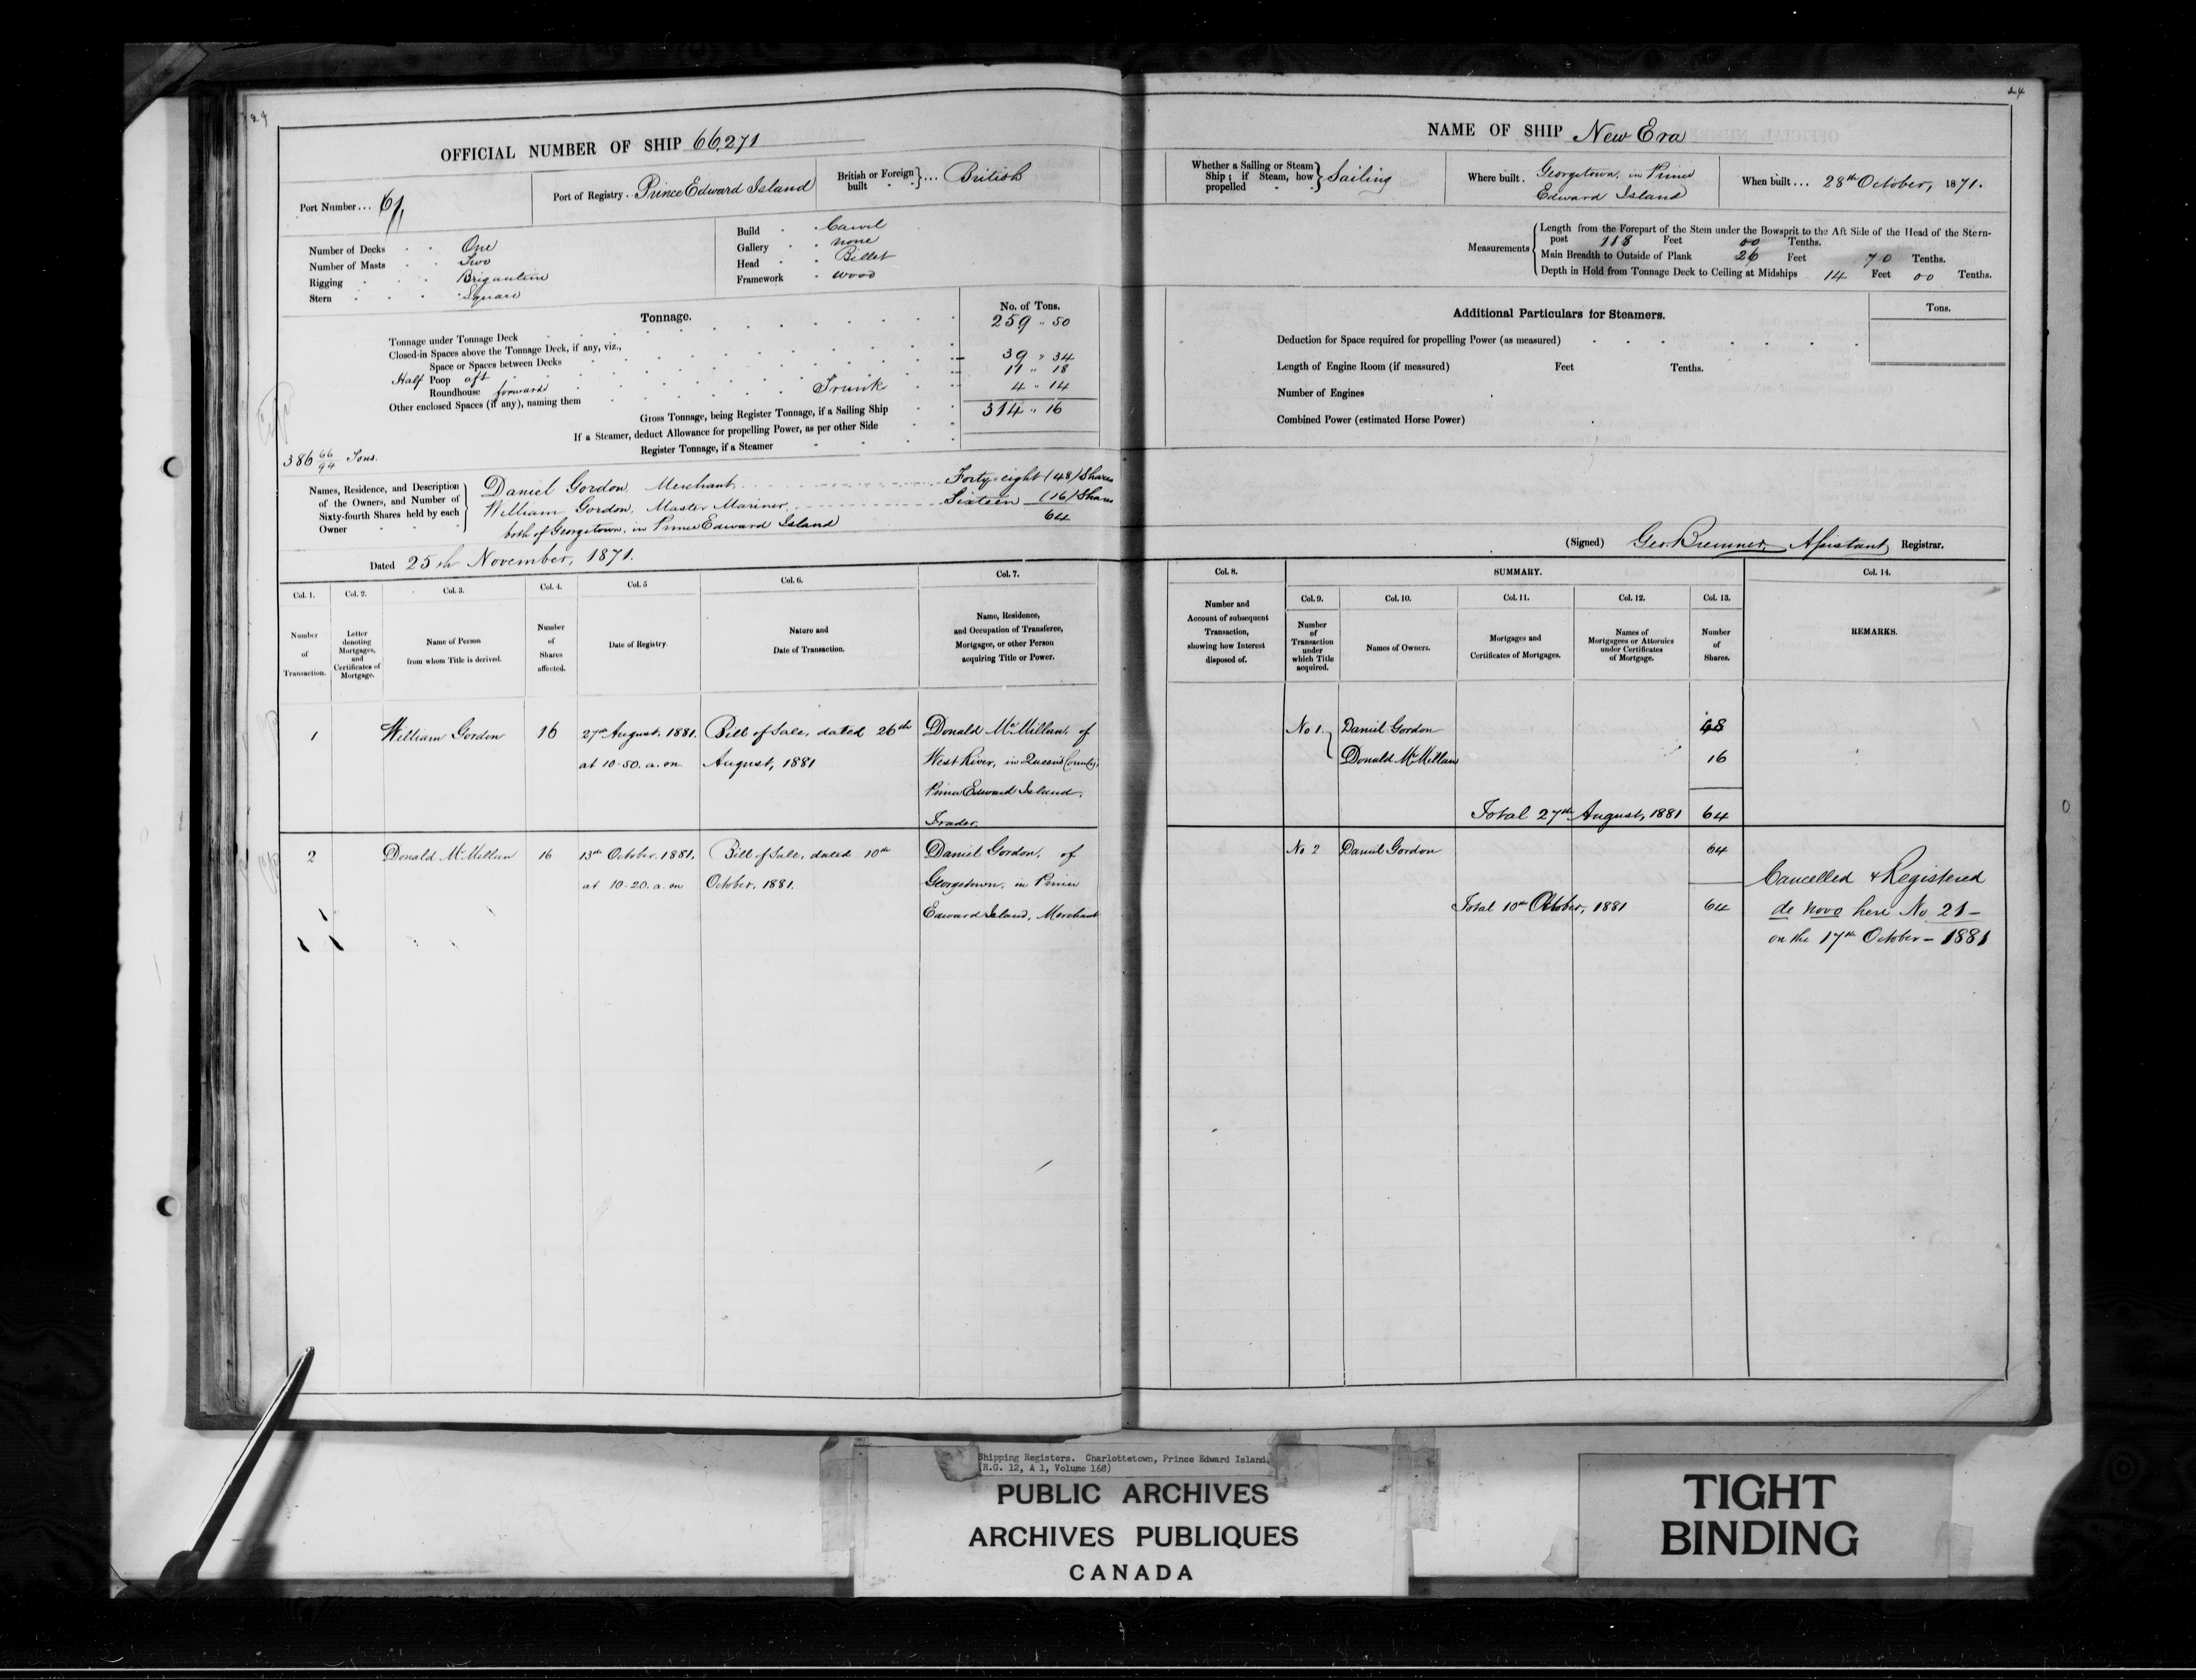 OFFICIAL NUMBER OF SHIP 66,271
Port Number... 61
Port of Registry. Prince Edward Island
British or Foreign built } ... British
Number of Decks One
Number of Masts Two
Rigging Brigantine
Stern Square
Build Carvel
Gallery none
Head Billet
Framework wood
Tonnage.
No. of Tons.
Tonnage under Tonnage Deck 259 " 50
Closed-in Spaces above the Tonnage Deck, if any, viz.,
Space or Spaces between Decks
Half Poop aft 39 " 34
Roundhouse forward 11 " 18
Other enclosed Spaces (if any), naming them Trunk 4 " 14
Gross Tonnage, being Register Tonnage, if a Sailing Ship 314 " 16
If a Steamer, deduct Allowance for propelling Power, as per other Side
Register Tonnage, if a Steamer
386 66/94 Tons.
Names, Residence, and Description
of the Owners, and Number of
Sixty-fourth Shares held by each
Owner
Daniel Gordon, Merchant Forty-eight (48) Shares
William Gordon, Master Mariner Sixteen (16) Shares
both of Georgetown, in Prince Edward Island 64
Dated 25th November, 1871.
Col. 1. Col. 2. Col. 3. Col. 4. Col. 5 Col. 6. Col. 7.
Number of Transaction.
Letter denoting Mortgages, and Certificates of Mortgage.
Name of Person from whom Title is derived.
Number of Shares affected.
Date of Registry.
Nature and Date of Transaction.
Name, Residence, and Occupation of Transferee, Mortgagee, or other Person acquiring Title or Power.
1 William Gordon 16 27th August, 1881. Bill of Sale, dated 26th Donald McMillan, of
at 10-50. a.m. August, 1881 West River, in Queen's County,
Prince Edward Island,
Trader.
2 Donald McMillan 16 13th October, 1881, Bill of Sale, dated 10th Daniel Gordon, of
at 10-20. a.m October, 1881. Georgetown, in Prince
Edward Island, Merchant
24
NAME OF SHIP New Era
Whether a Sailing or Steam Ship; if Steam, how propelled } Sailing
Where built. Georgetown, in Prince
Edward Island
When built... 28th October, 1871.
Measurements
Length from the Forepart of the Stem under the Bowsprit to the Aft Side of the Head of the Stern-
post 118 Feet 00 Tenths.
Main Breadth to Outside of Plank 26 Feet 70 Tenths.
Depth in Hold from Tonnage Deck to Ceiling at Midships 14 Feet 00 Tenths.
Additional Particulars for Steamers.
Tons.
Deduction for Space required for propelling Power (as measured)
Length of Engine Room (if measured) Feet Tenths.
Number of Engines
Combined Power (estimated Horse Power)
(Signed) Geo Bremner, Assistant Registrar.
Col. 8. SUMMARY. Col. 14.
Col. 9. Col. 10. Col. 11. Col. 12. Col. 13.
Number and Account of subsequent Transaction, showing how Interest disposed of.
Number of Transaction under which Title acquired.
Names of Owners.
Mortgages and Certificates of Mortgages.
Names of Mortgagees or Attornies under Certificates of Mortgage.
Number of Shares.
REMARKS.
No 1. Daniel Gordon 48
Donald McMillan 16
Total 27th August, 1881 64
No 2 Daniel Gordon 64
Total 10th October, 1881 64
Cancelled & Registered
de novo here No 21 -
on the 17th October - 1881
Shipping Registers. Charlottetown, Prince Edward Island.
(R.G. 12, A 1, Volume 168)
PUBLIC ARCHIVES
ARCHIVES PUBLIQUES
CANADA
TIGHT
BINDING